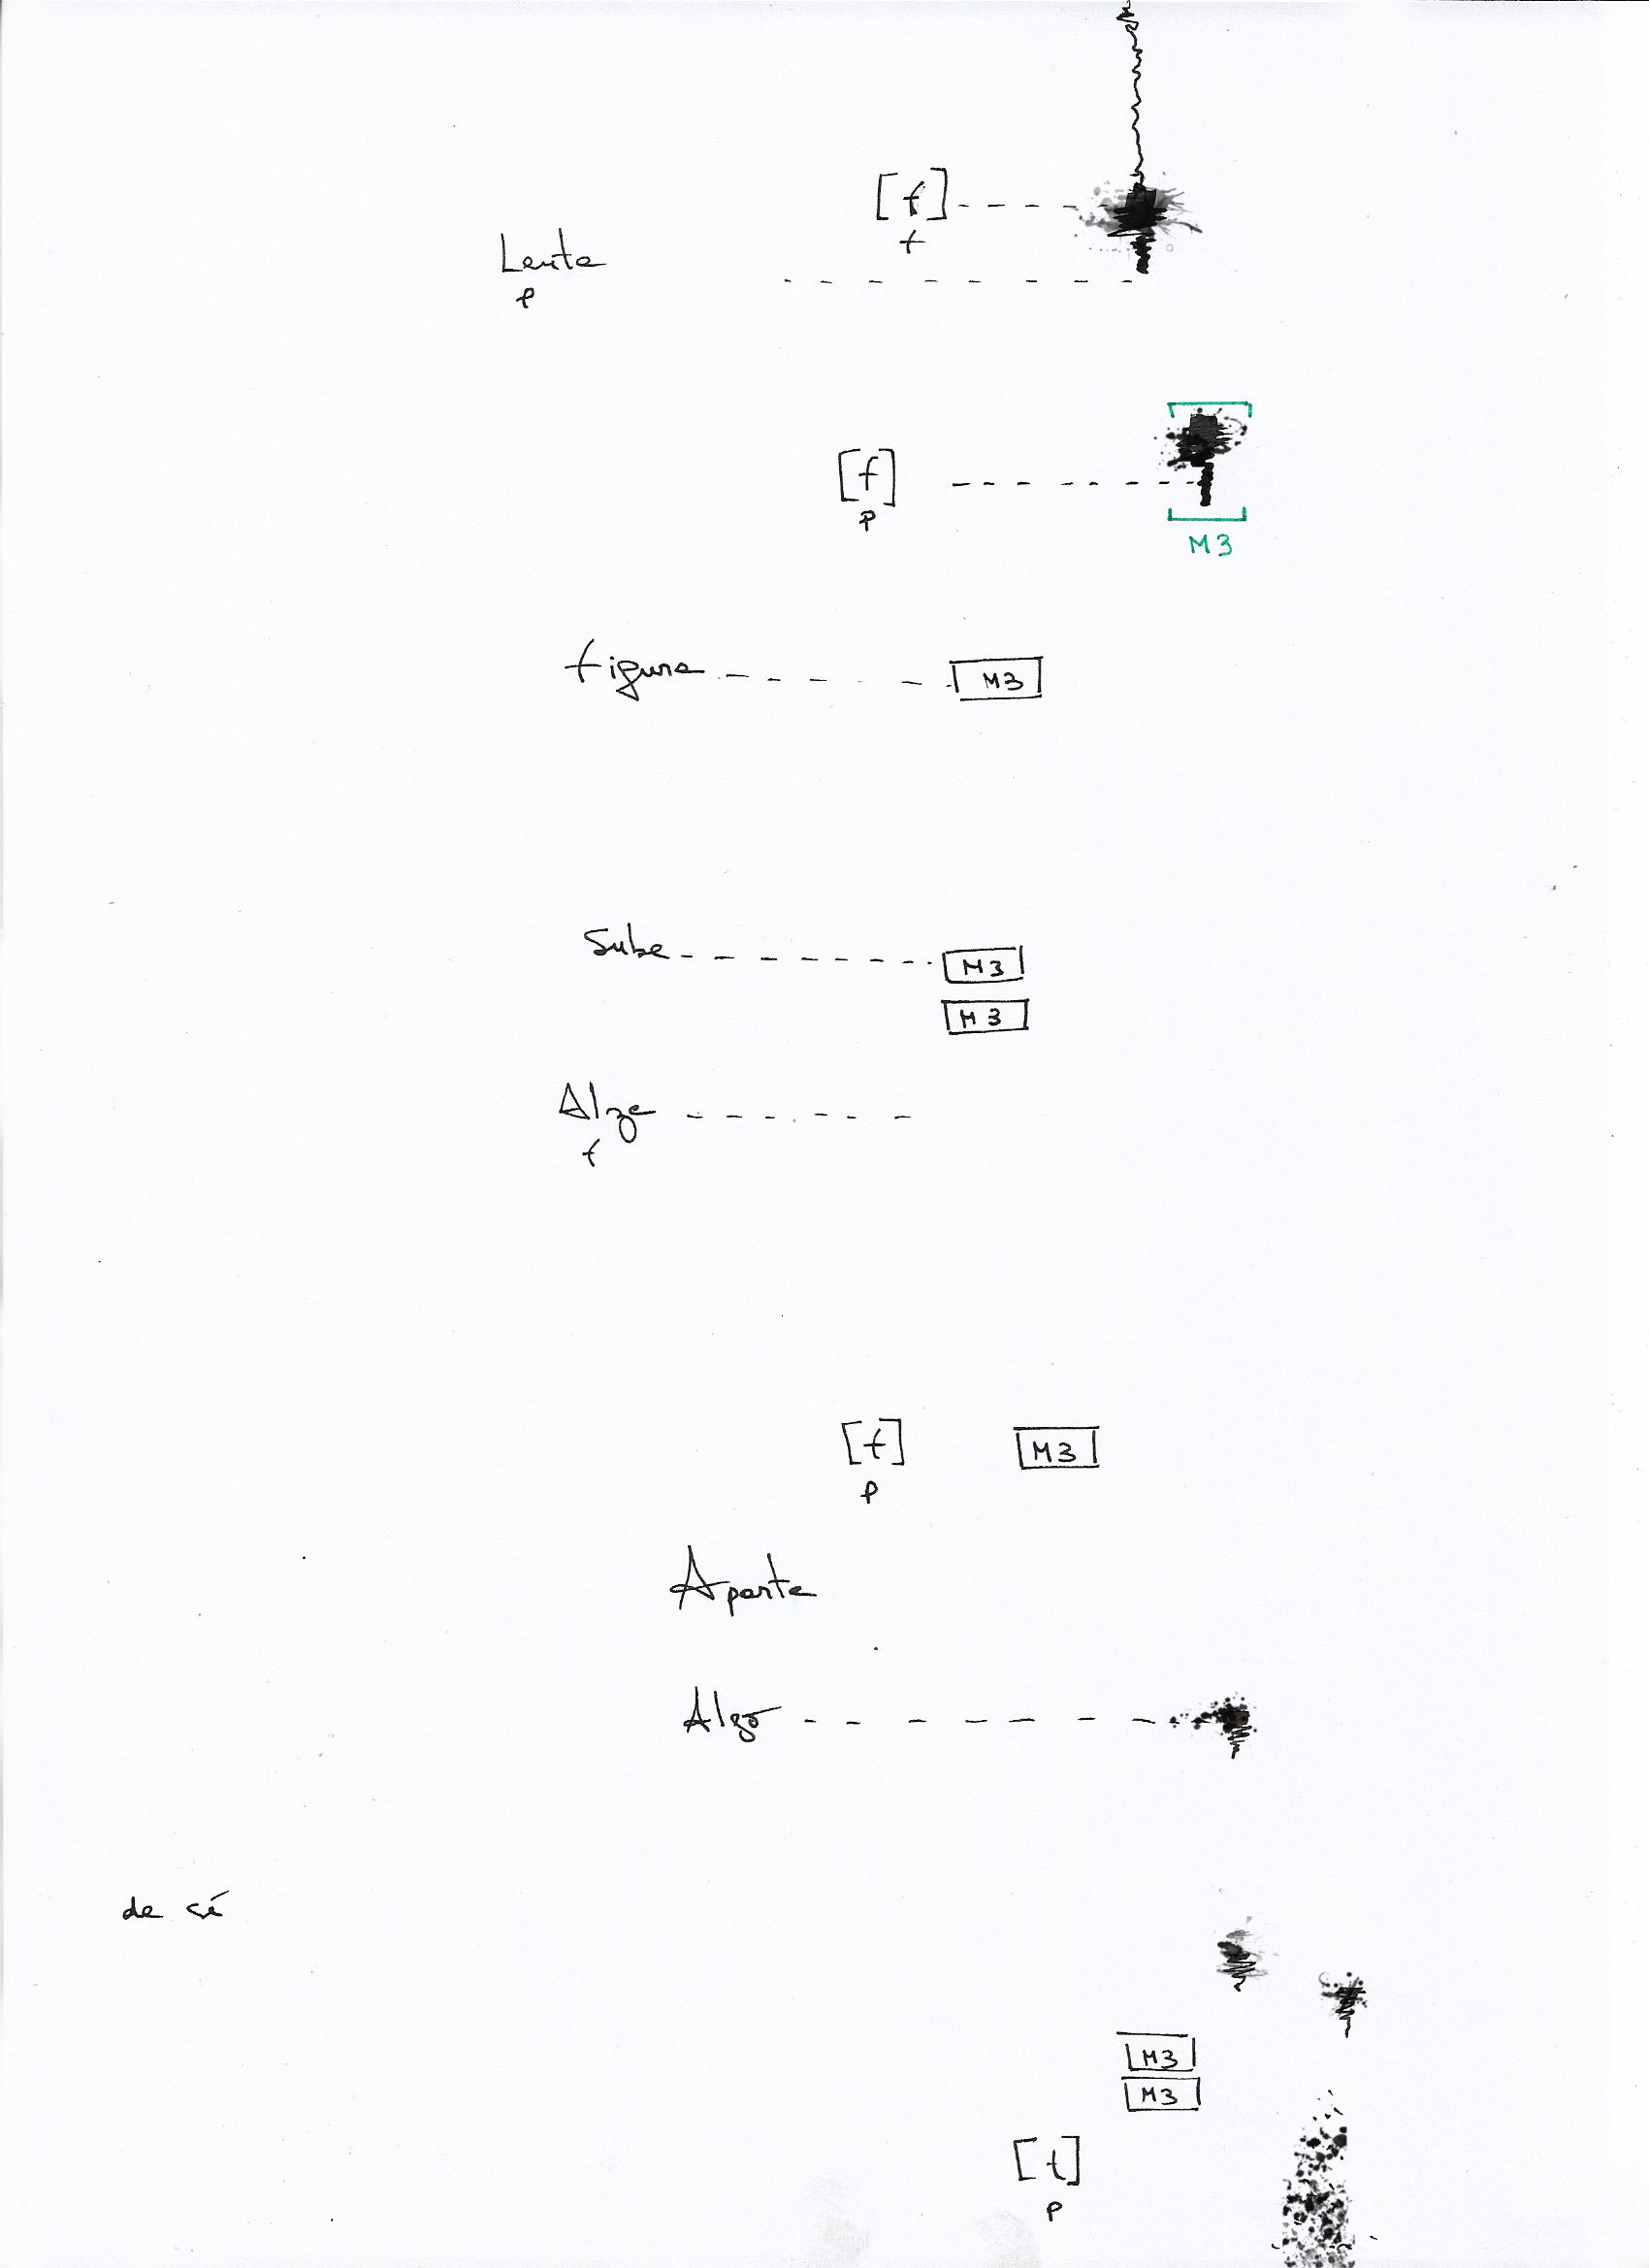 [f]
f
Lenta
p
[f]
p
M3
figura M3
Sube M3
M3
Alza
f
[t] M3
p
Aparta
Algo
de sí
M3
M3
[t]
p